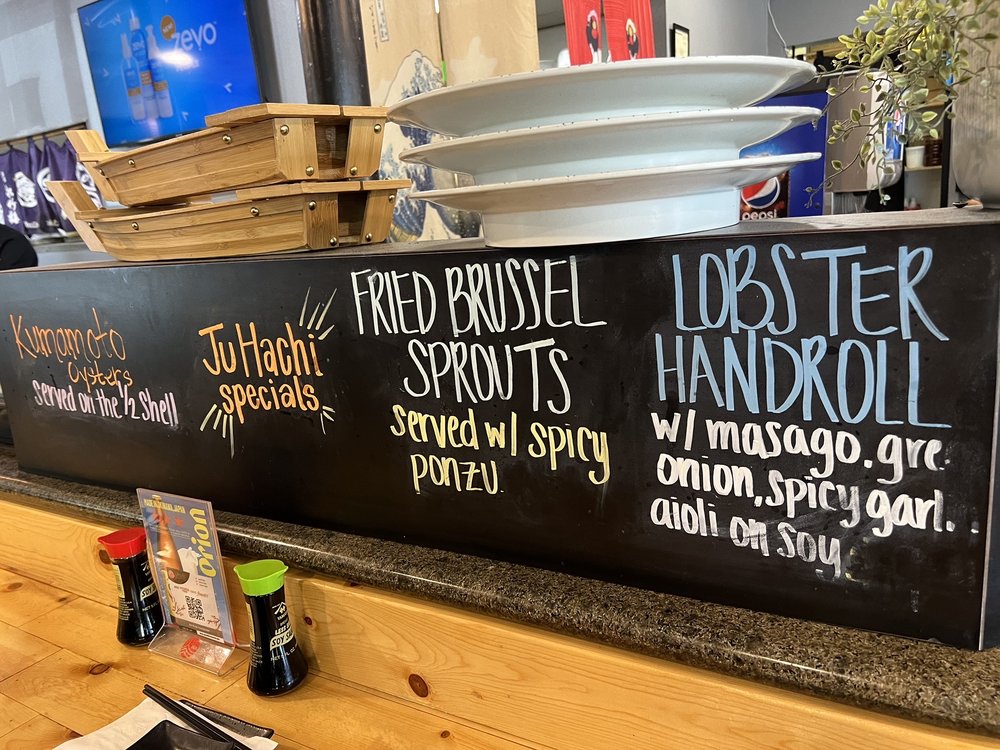 zevo
pepsi
Kumamoto
Oysters
served on the 1/2 shell
Ju Hachi
specials
FRIED BRUSSEL
SPROUTS
served w/ spicy
ponzu.
LOBSTER
HANDROLL
w/ masago. gre.
onion, spicy garl.
aioli on soy
Orion
LESS
SOY SAUCE